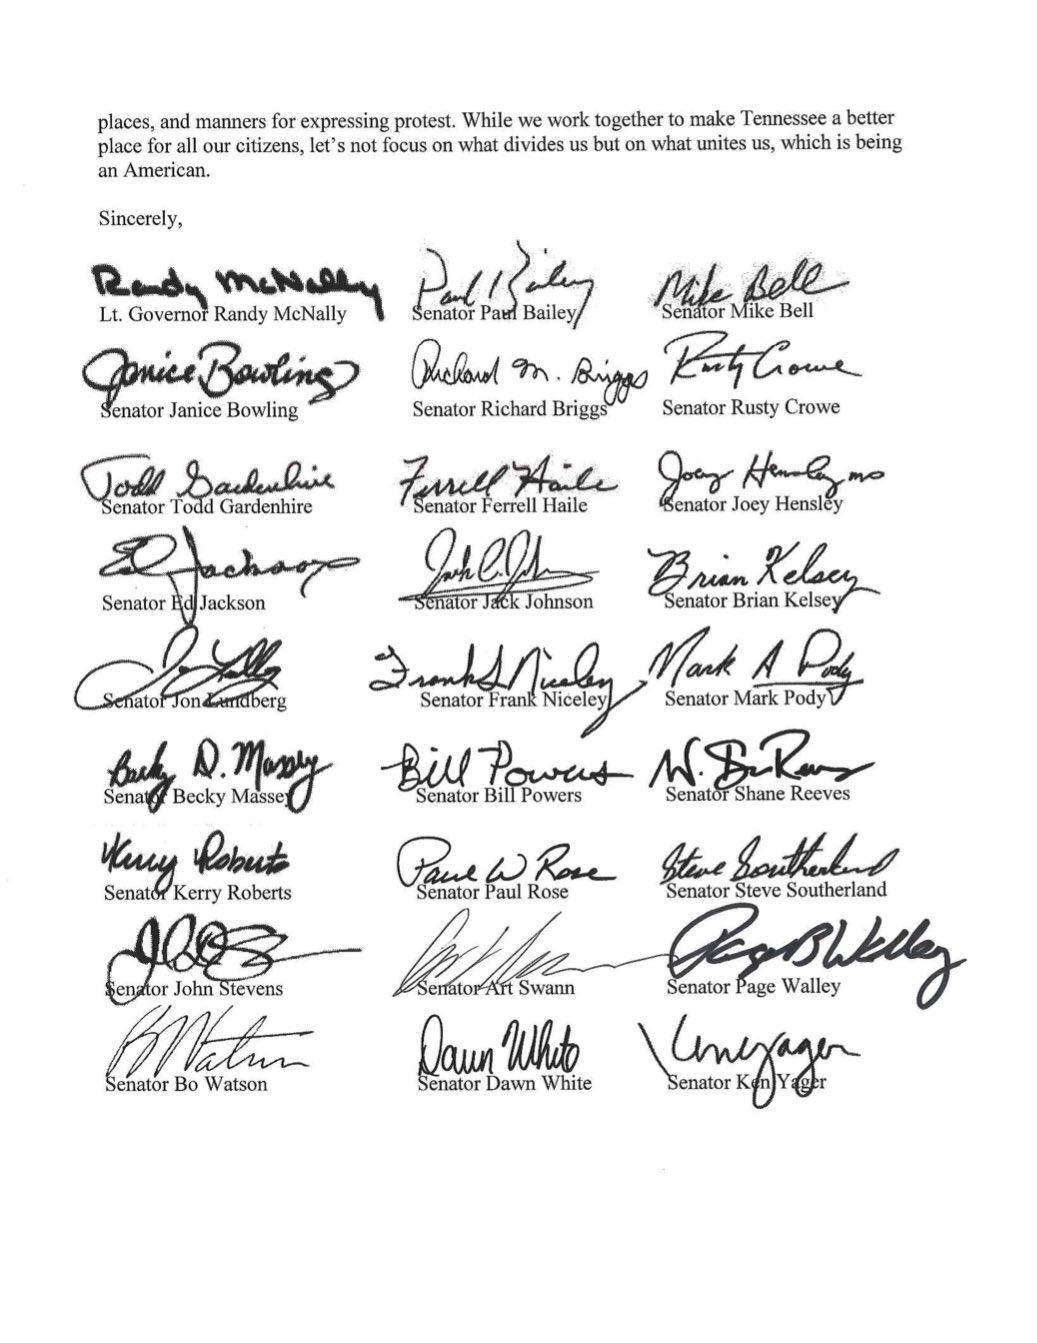 places, and manners for expressing protest. While we work together to make Tennessee a better
place for all our citizens, let's not focus on what divides us but on what unites us, which is being
an American.
Sincerely,
Randy McNally Paul Bailey Mike Bell
Lt. Governor Randy McNally Senator Paul Bailey Senator Mike Bell
Janice Bowling Richard M. Briggs Rusty Crowe
Senator Janice Bowling Senator Richard Briggs Senator Rusty Crowe
Todd Gardenhire Ferrell Haile Joey Hensley MD
Senator Todd Gardenhire Senator Ferrell Haile Senator Joey Hensley
Ed Jackson Jack Johnson Brian Kelsey
Senator Ed Jackson Senator Jack Johnson Senator Brian Kelsey
Frank S Niceley Mark A Pody
Senator Jon Lundberg Senator Frank Niceley Senator Mark Pody
Becky D. Massey Bill Powers W.
Senator Becky Massey Senator Bill Powers Senator Shane Reeves
Kerry Roberts Paul W Rose Steve Southerland
Senator Kerry Roberts Senator Paul Rose Senator Steve Southerland
Page B Walley
Senator John Stevens Senator Art Swann Senator Page Walley
Bo Watson Dawn White Ken Yager
Senator Bo Watson Senator Dawn White Senator Ken Yager